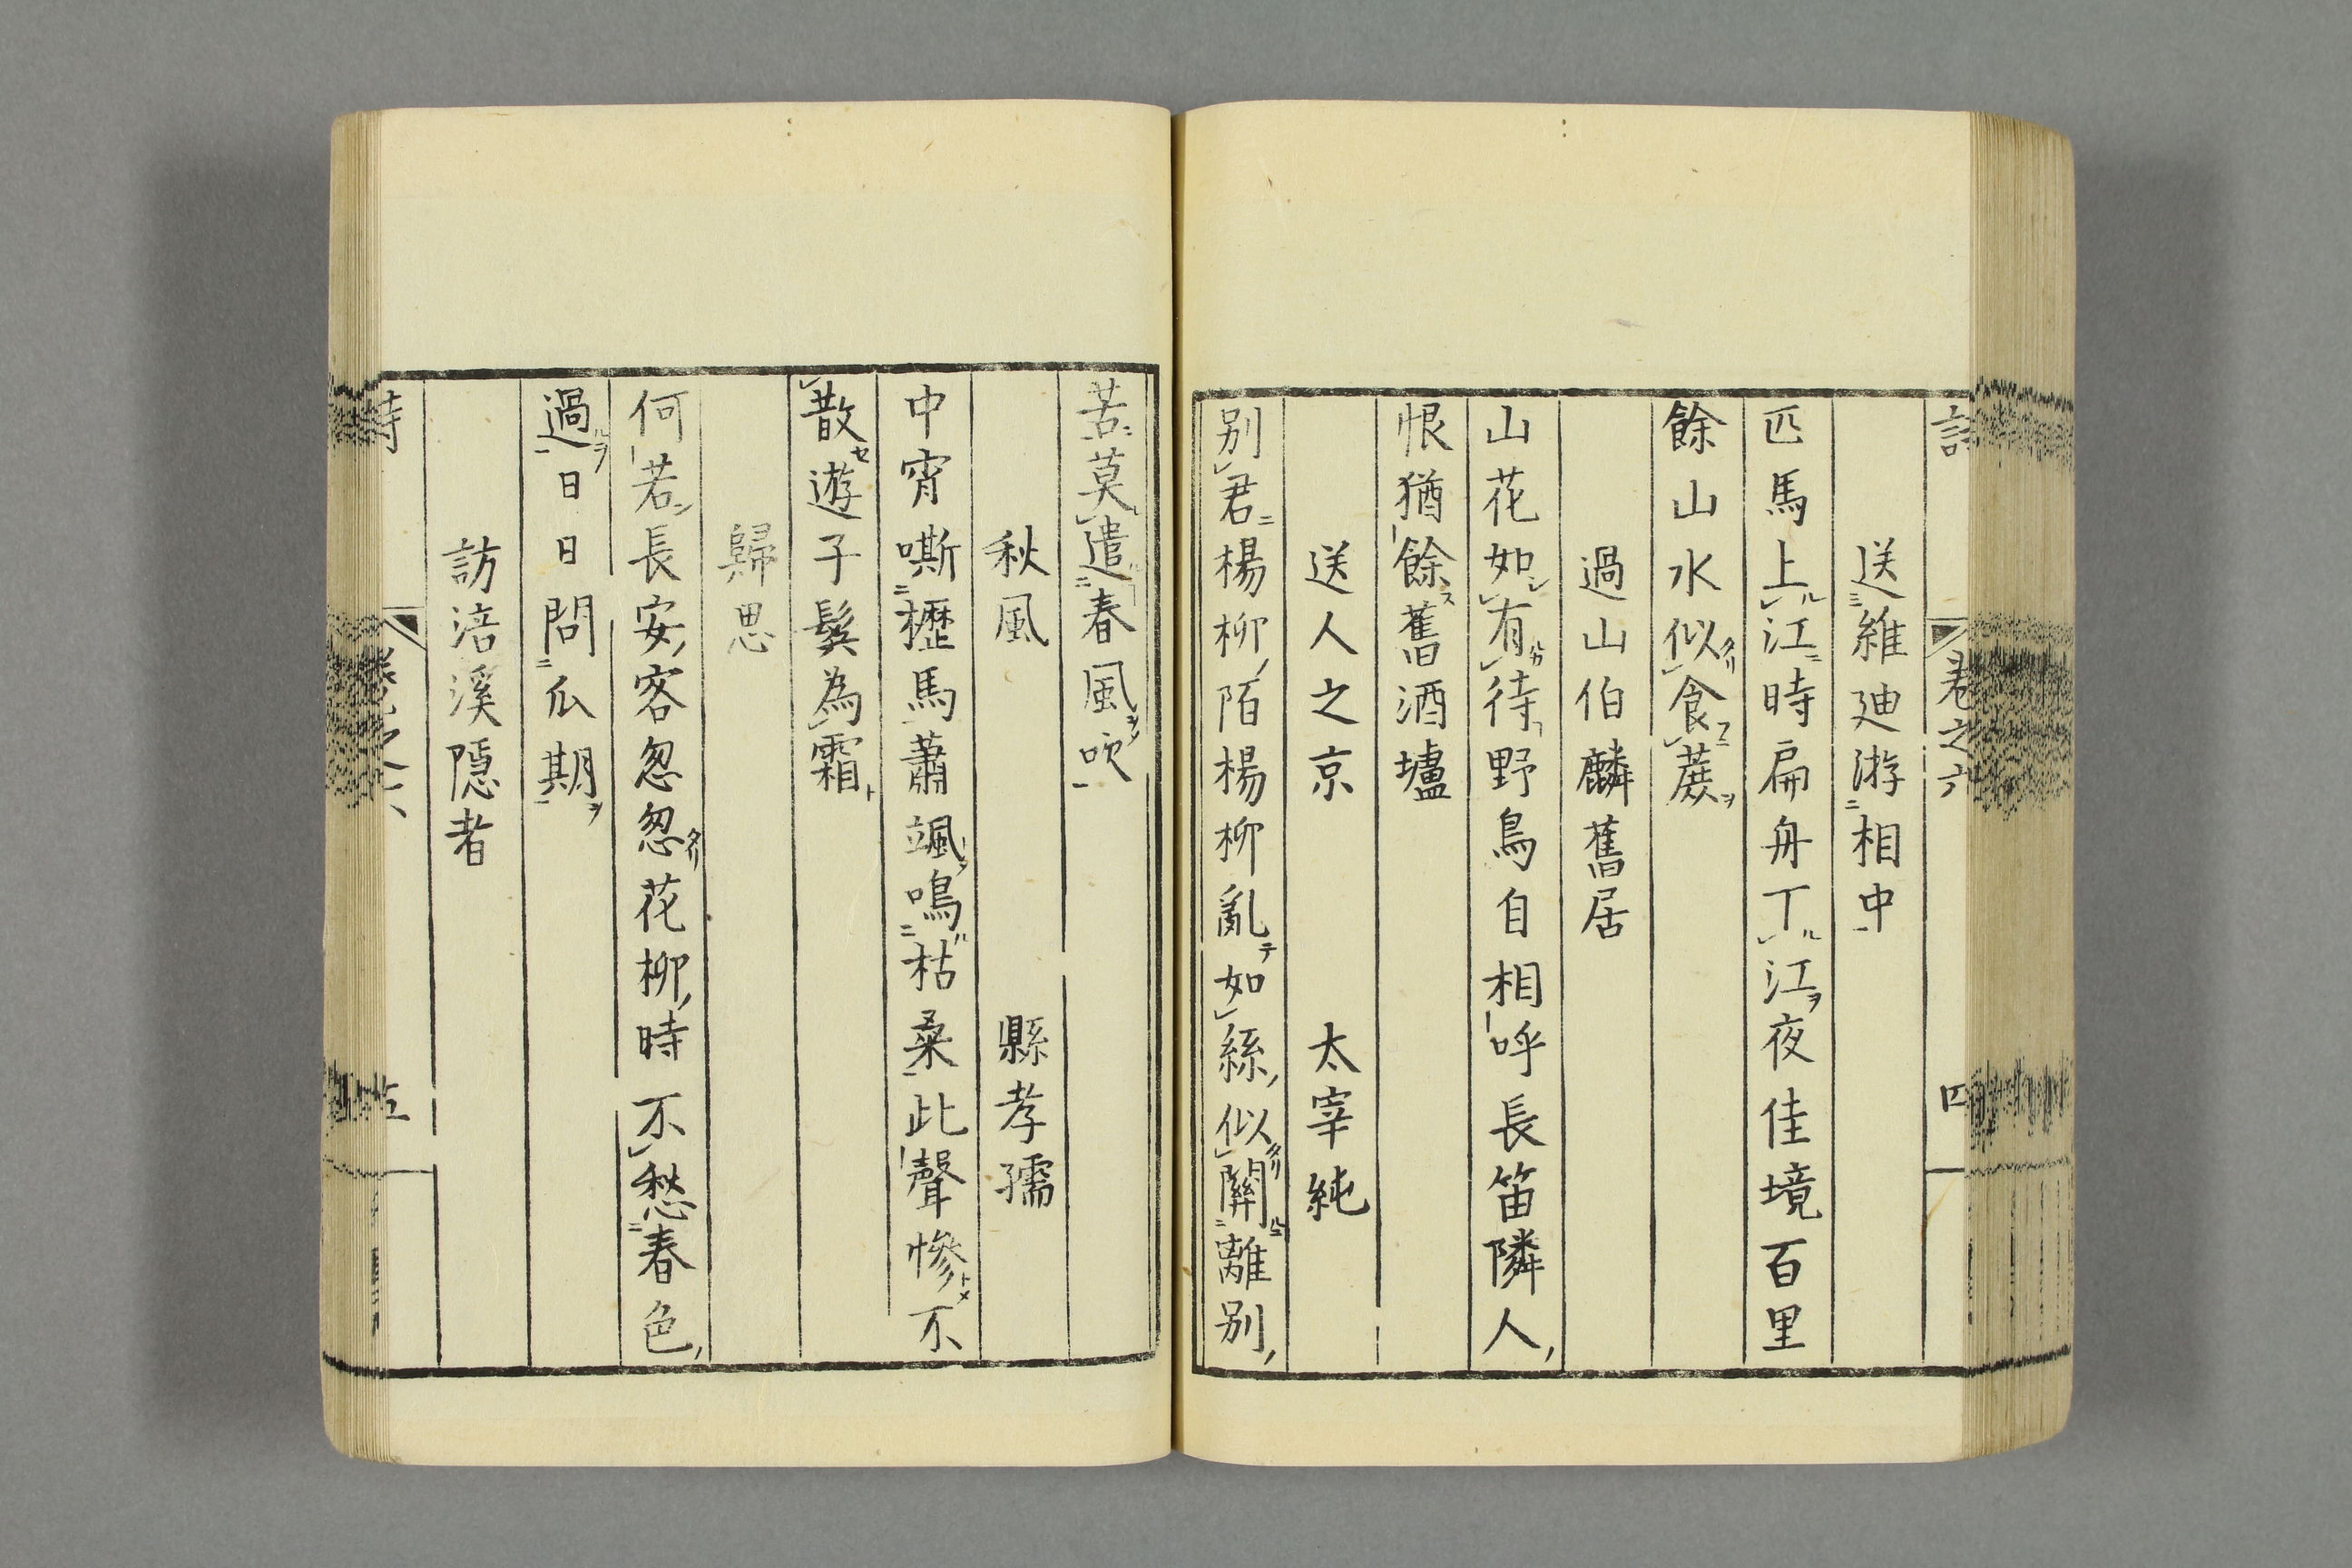 送維廸游相中
匹馬上江時扁舟丁江夜佳境百里
餘山水似食蔗
過山伯麟舊居
山花如有待野鳥自相呼長笛隣人
恨猶餘舊酒壚
送人之京　太宰純
別君楊柳陌楊柳亂如絲似關離別
苦莫遣春風吹
秋風　縣孝孺
中宵嘶櫪馬蕭颯鳴枯桑此聲慘不
散遊子鬂為霜
歸思
何若長安客忽忽花柳時不愁春色
過日日問瓜期
訪涪溪隱者
卷之六
四